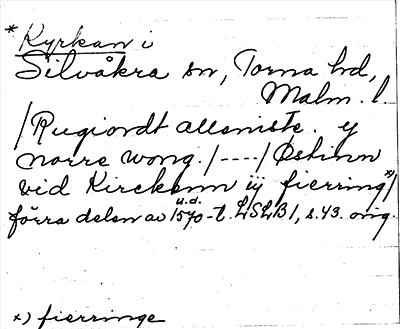 * Kyrkan i
Silvåkra sn, Torna hd,
Malm. l.
/Rugiordt allsmiste. y
norre wong./----/Østinn
vid Kirckenn iij fierring x)/
förra delen av u.å. 1570-t. LSLB 1, s.43. orig.
x) fierringe